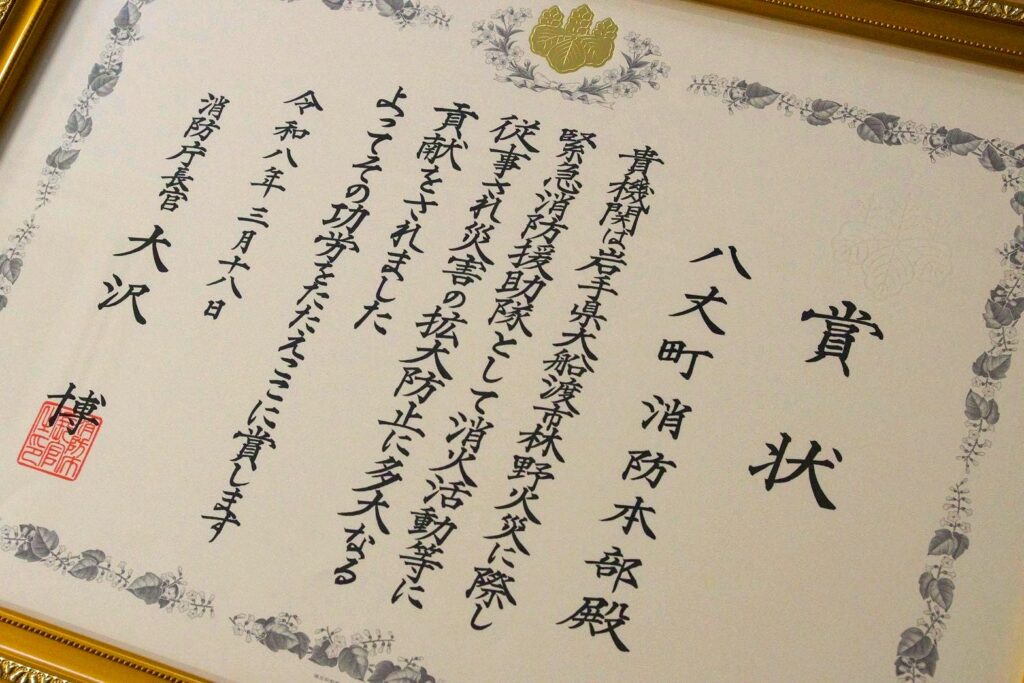 賞状
八丈町消防本部殿
貴機関は岩手県大船渡市林野火災に際し
緊急消防援助隊として消火活動等に
従事され災害の拡大防止に多大なる
貢献をされました
よってその功労をたたえここに賞します
令和八年三月十八日
消防庁長官 大沢博
消防庁長官之印